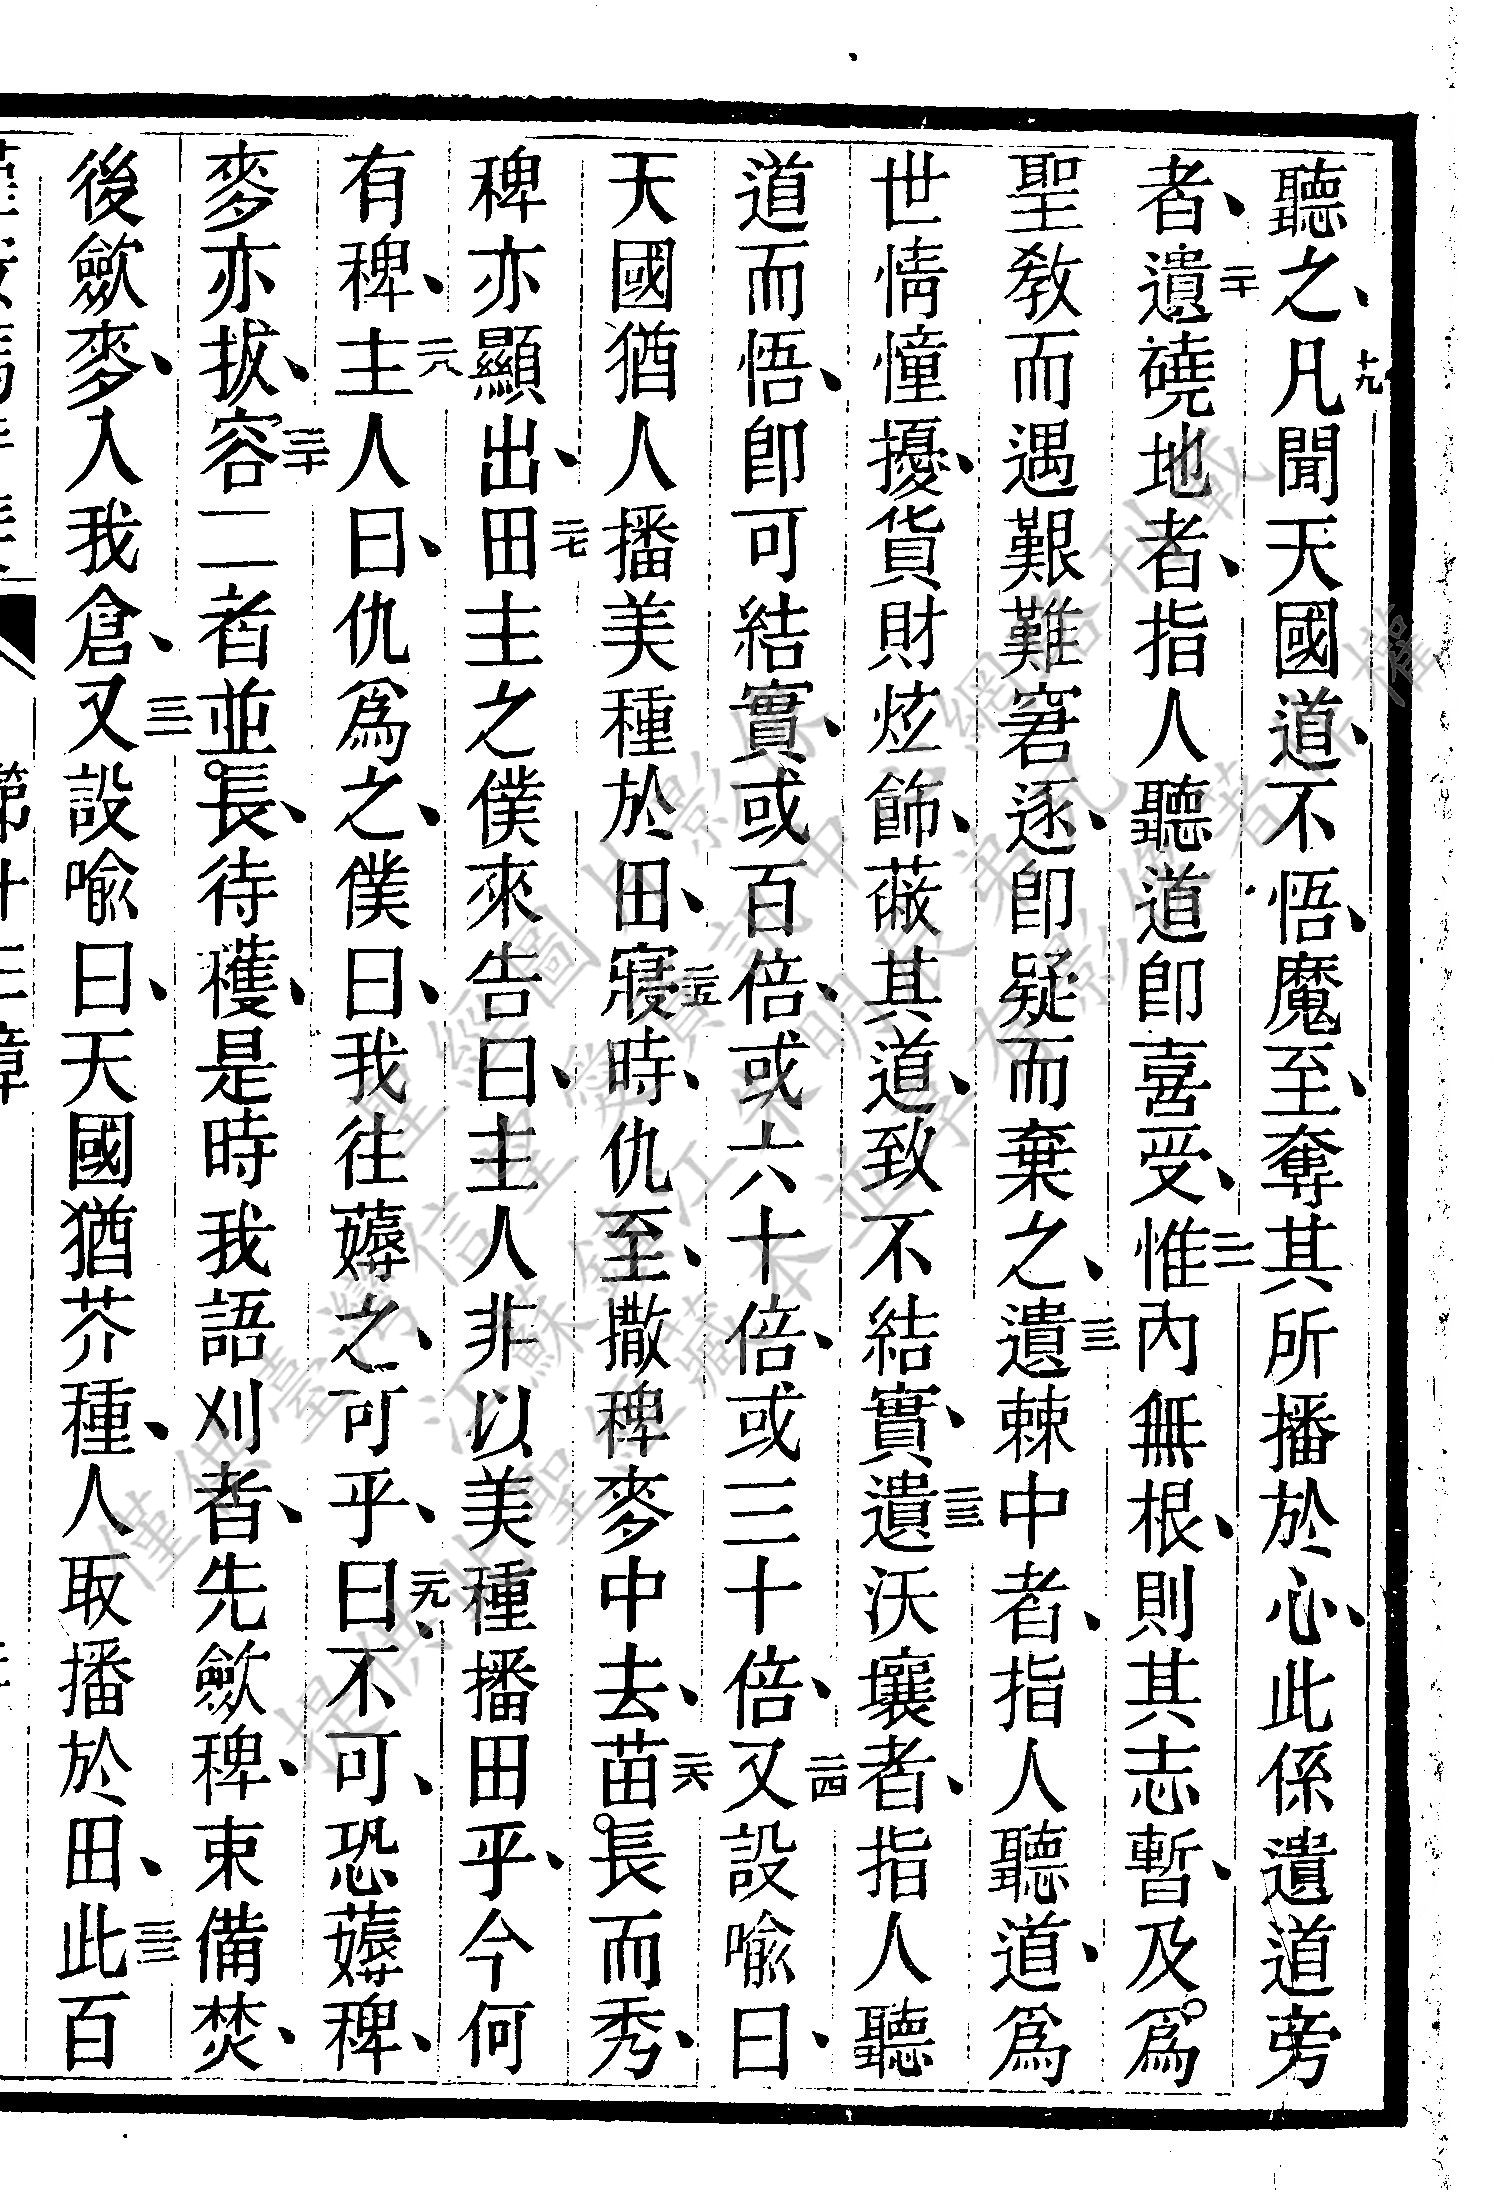 聽之、十九凡聞天國道、不悟、魔至、奪其所播於心、此係遺道旁
者、二十遺磽地者、指人聽道卽喜受、二一惟內無根、則其志暫、及爲
聖教而遇艱難窘逐、卽疑而棄之、二二遺棘中者、指人聽道、爲
世情憧擾、貨財炫飾、蔽其道、致不結實、二三遺沃壤者、指人聽
道而悟、卽可結實、或百倍、或六十倍、或三十倍、二四又設喩曰、
天國猶人播美種於田、二五寢時、仇至、撒稗麥中去、二六苗長而秀、
稗亦顯出、二七田主之僕來告曰、主人非以美種播田乎、今何
有稗、二八主人曰、仇爲之、僕曰、我往薅之、可乎、二九曰、不可、恐薅稗、
麥亦拔、三十容二者並長、待穫、是時我語刈者、先斂稗、束備焚、
後斂麥、入我倉、三一又設喩曰、天國猶芥種、人取播於田、三二此百
第十三章